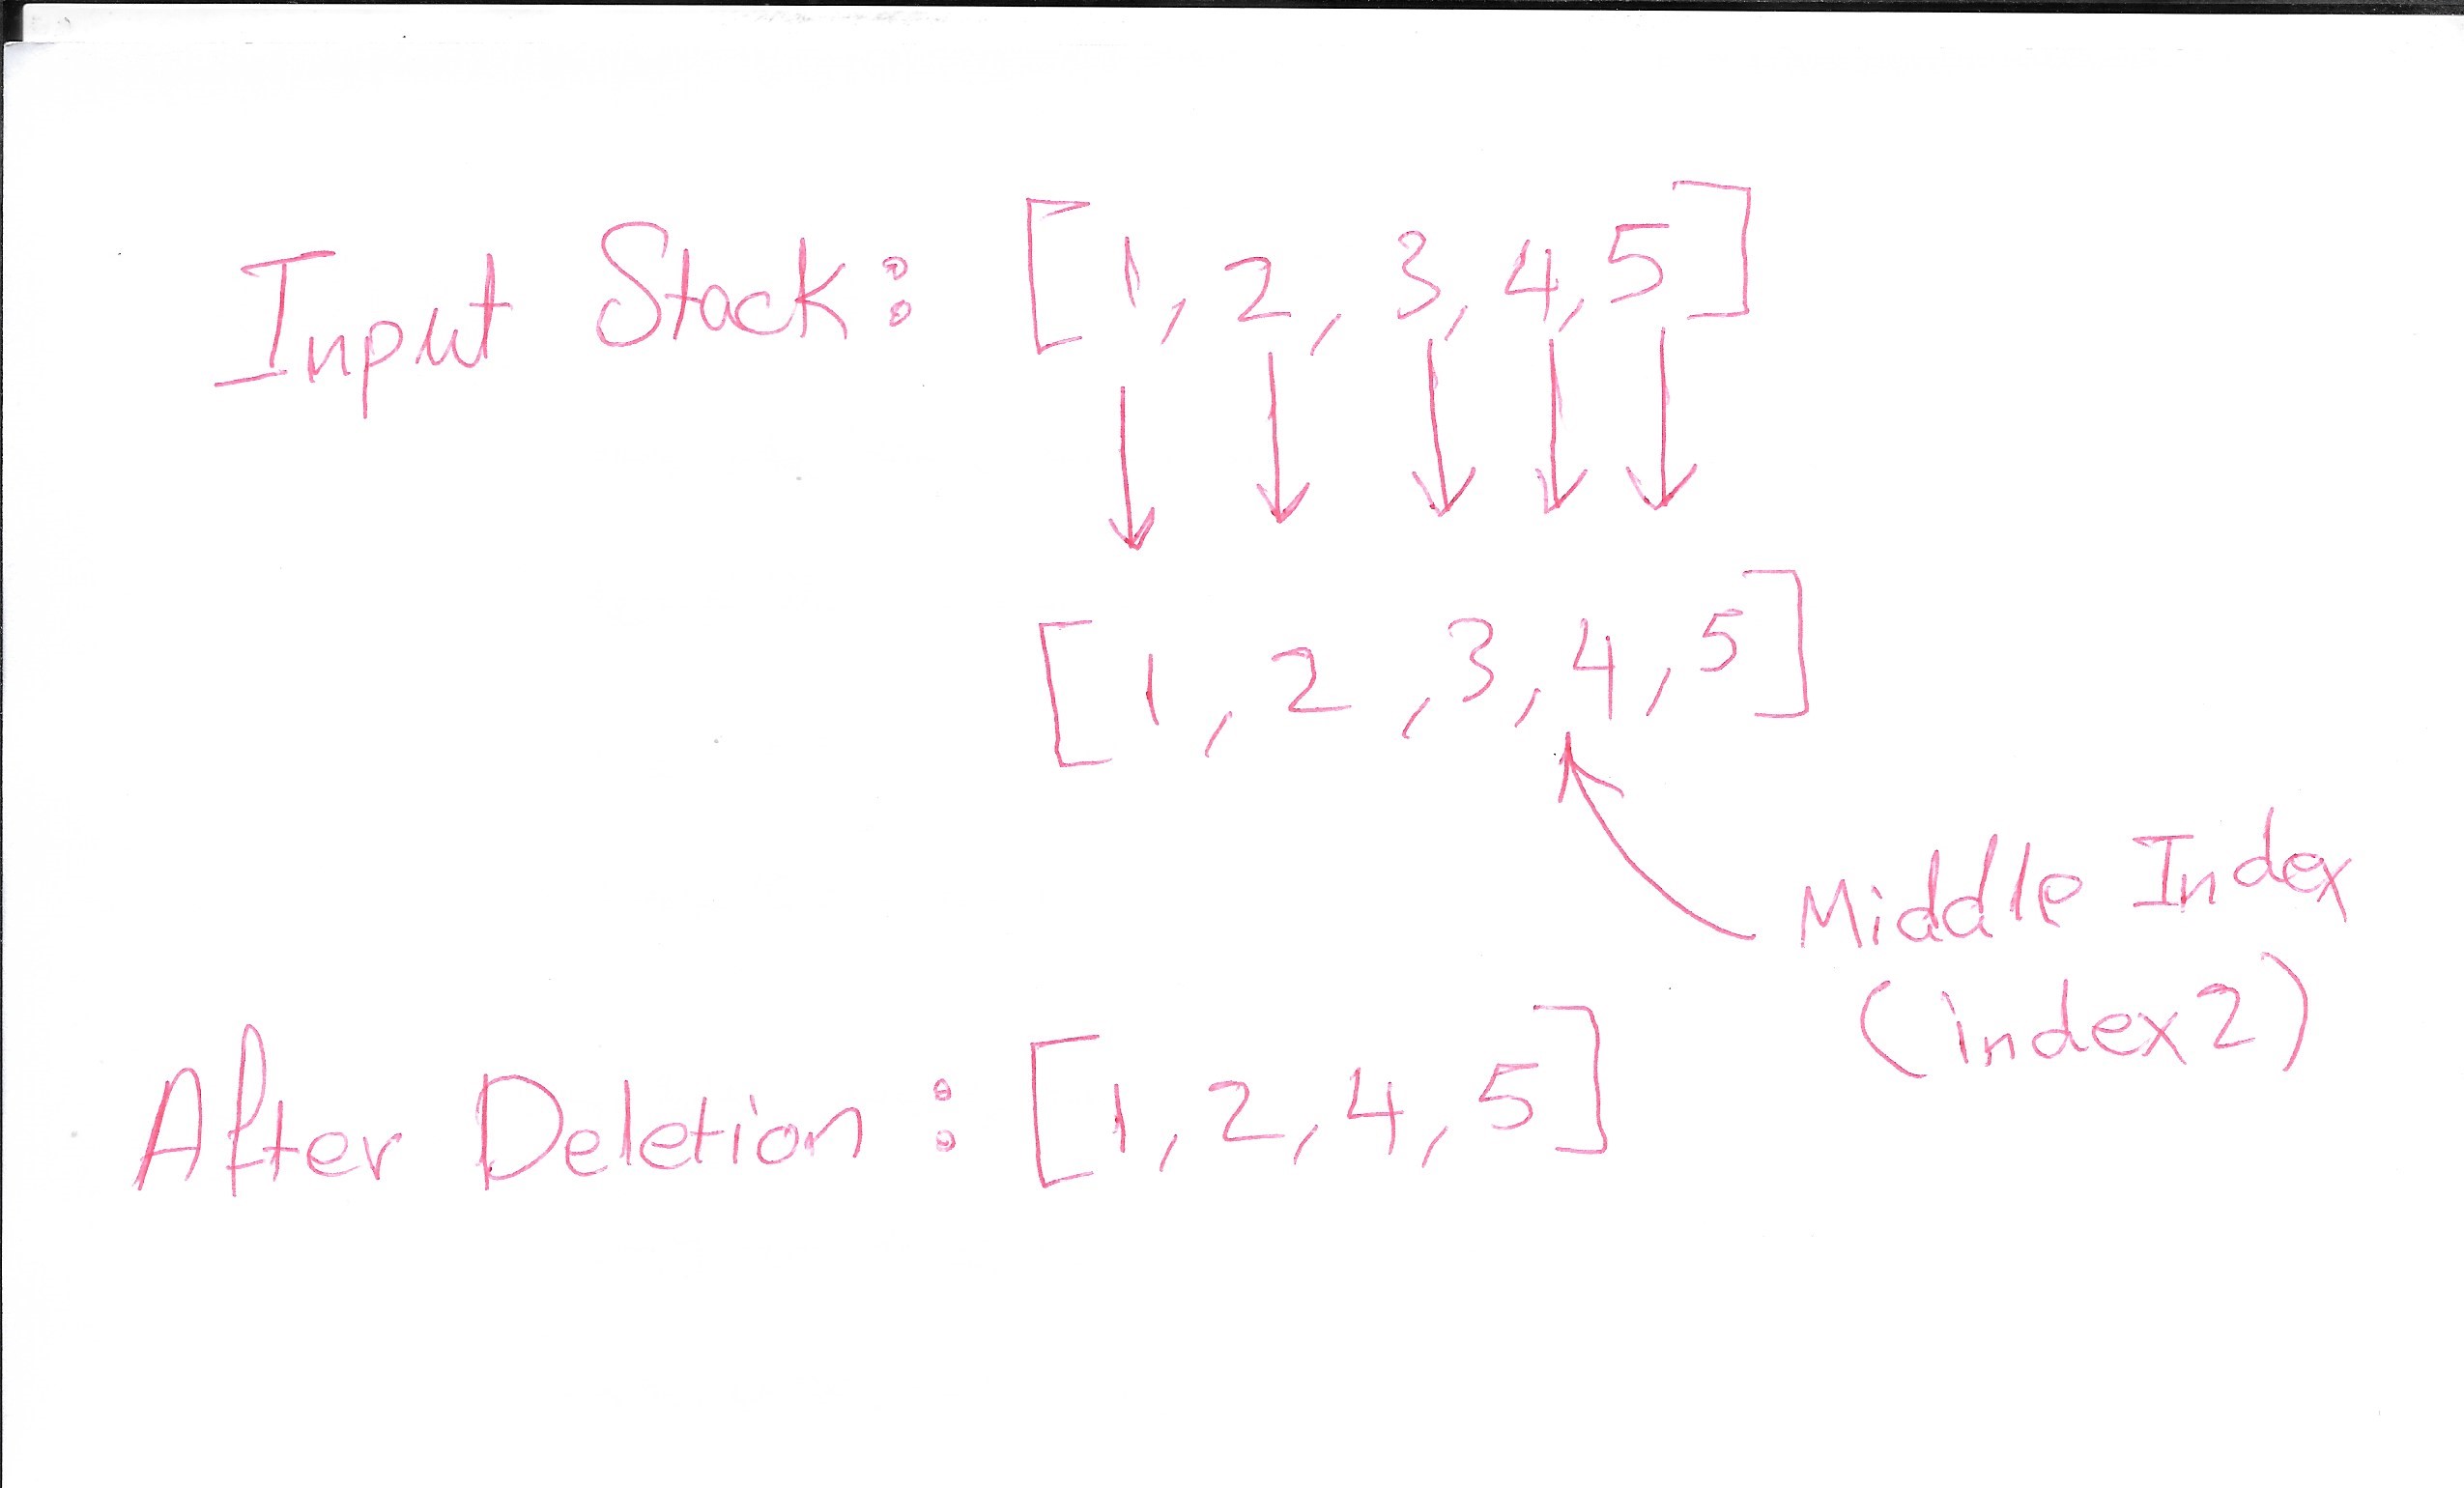 Input Stack: [1, 2, 3, 4, 5]
[1, 2, 3, 4, 5]
Middle Index
(index 2)
After Deletion: [1, 2, 4, 5]